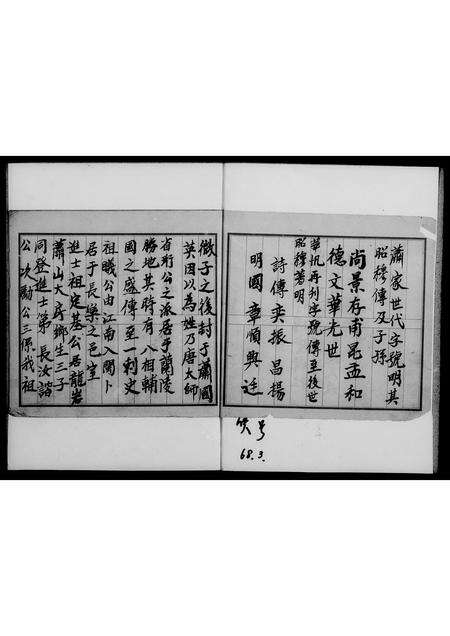 蕭家世代字號明其
昭穆傳及子孫
尚景存甫昆孟和
德文華光世
華執再刋字號傳至後世
昭穆著明
詩傳奕振昌揚
明國章順興廷
微子之後封于蕭國
英因以為姓乃唐太師
省珩公之派居乎蘭陵
勝地其時有八相輔
國之盛傳至一刺史
祖曦公由江南入閩卜
居于長樂之邑室
進士祖定基公居龍岩
蕭山大房鄉生三子
同登進士第長汝諧
公次勵公三係我祖
號
68.3.